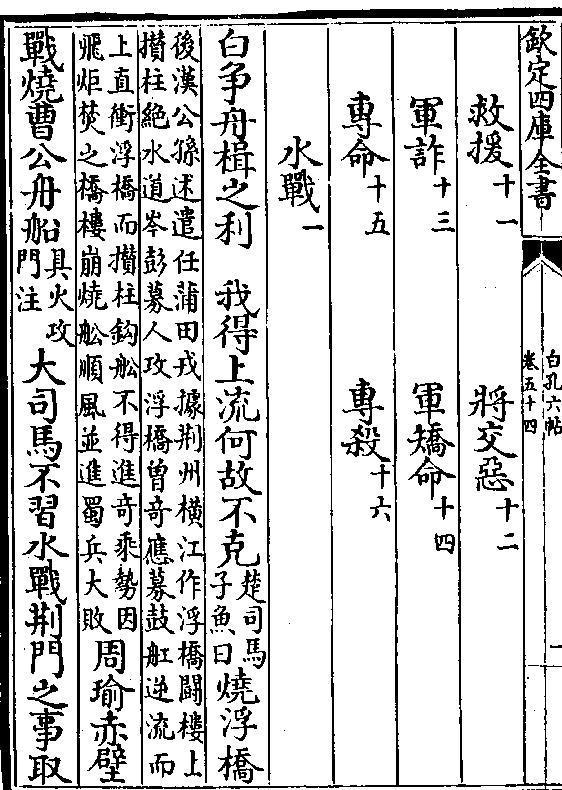 欽定四庫全書
白孔六帖
卷五十四
一
救援十一 將交惡十二
軍詐十三 軍矯命十四
專命十五 專殺十六
水戰一
白争舟楫之利 我得上流何故不克楚司馬子魚曰燒浮橋
後漢公孫述遣任蒲田戎據荆州横江作浮橋闘樓上
攅柱絶水道岑彭募人攻浮橋曾奇應募鼓舡逆流而
上直衝浮橋而攅柱鈎舩不得進奇乘勢因
飛炬焚之橋樓崩燒舩順風並進蜀兵大敗
周瑜赤壁
戰燒曹公舟船具火攻門注 大司馬不習水戰荆門之事取